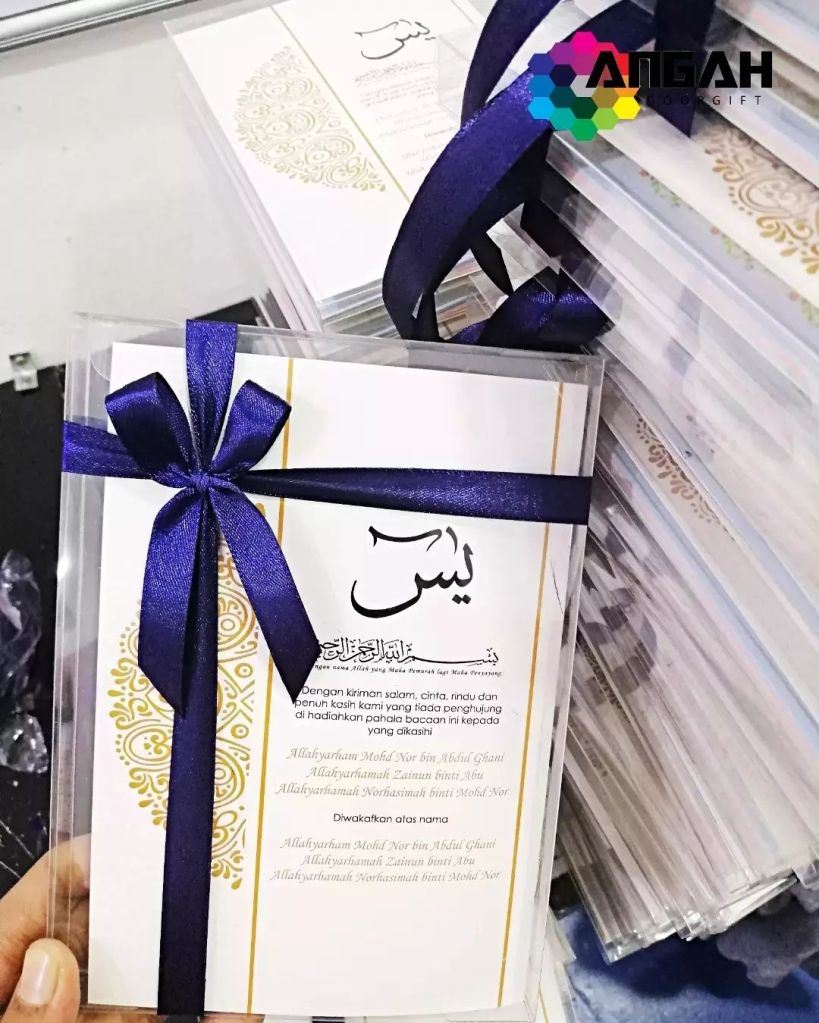 ANGAH
DOORGIFT
يس
يس
بسم الله الرحمن الرحيم
dengan nama Allah yang Maha Pemurah lagi Maha Penyayang
Dengan kiriman salam, cinta, rindu dan
penuh kasih kami yang tiada penghujung
di hadiahkan pahala bacaan ini kepada
yang dikasihi
Allahyarham Mohd Nor bin Abdul Ghani
Allahyarhamah Zainun binti Abu
Allahyarhamah Norhasimah binti Mohd Nor
Diwakafkan atas nama
Allahyarham Mohd Nor bin Abdul Ghani
Allahyarhamah Zainun binti Abu
Allahyarhamah Norhasimah binti Mohd Nor